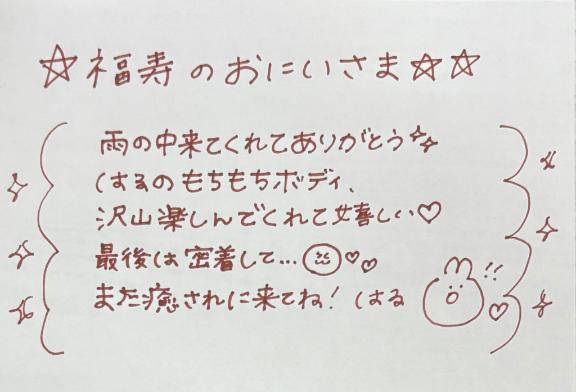 ☆福寿のおにいさま☆☆
雨の中来てくれてありがとう
はるのもちもちボディ、
沢山楽しんでくれて嬉しい♡
最後は密着して…♡♡
また癒されに来てね! はる !! ♡